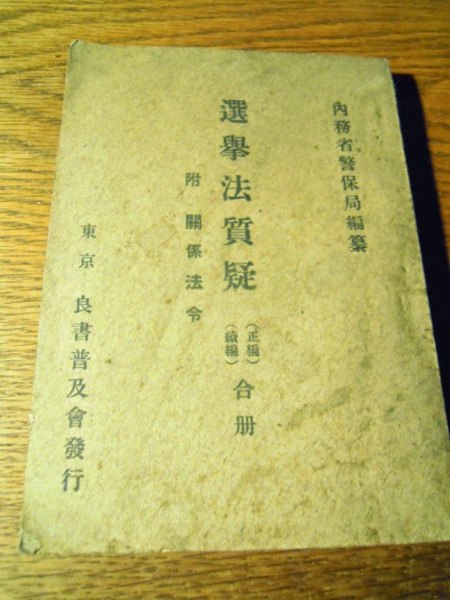 內務省警保局編纂
選擧法質疑（正編）（續編）合册
附 關係法令
東京 良書普及會發行